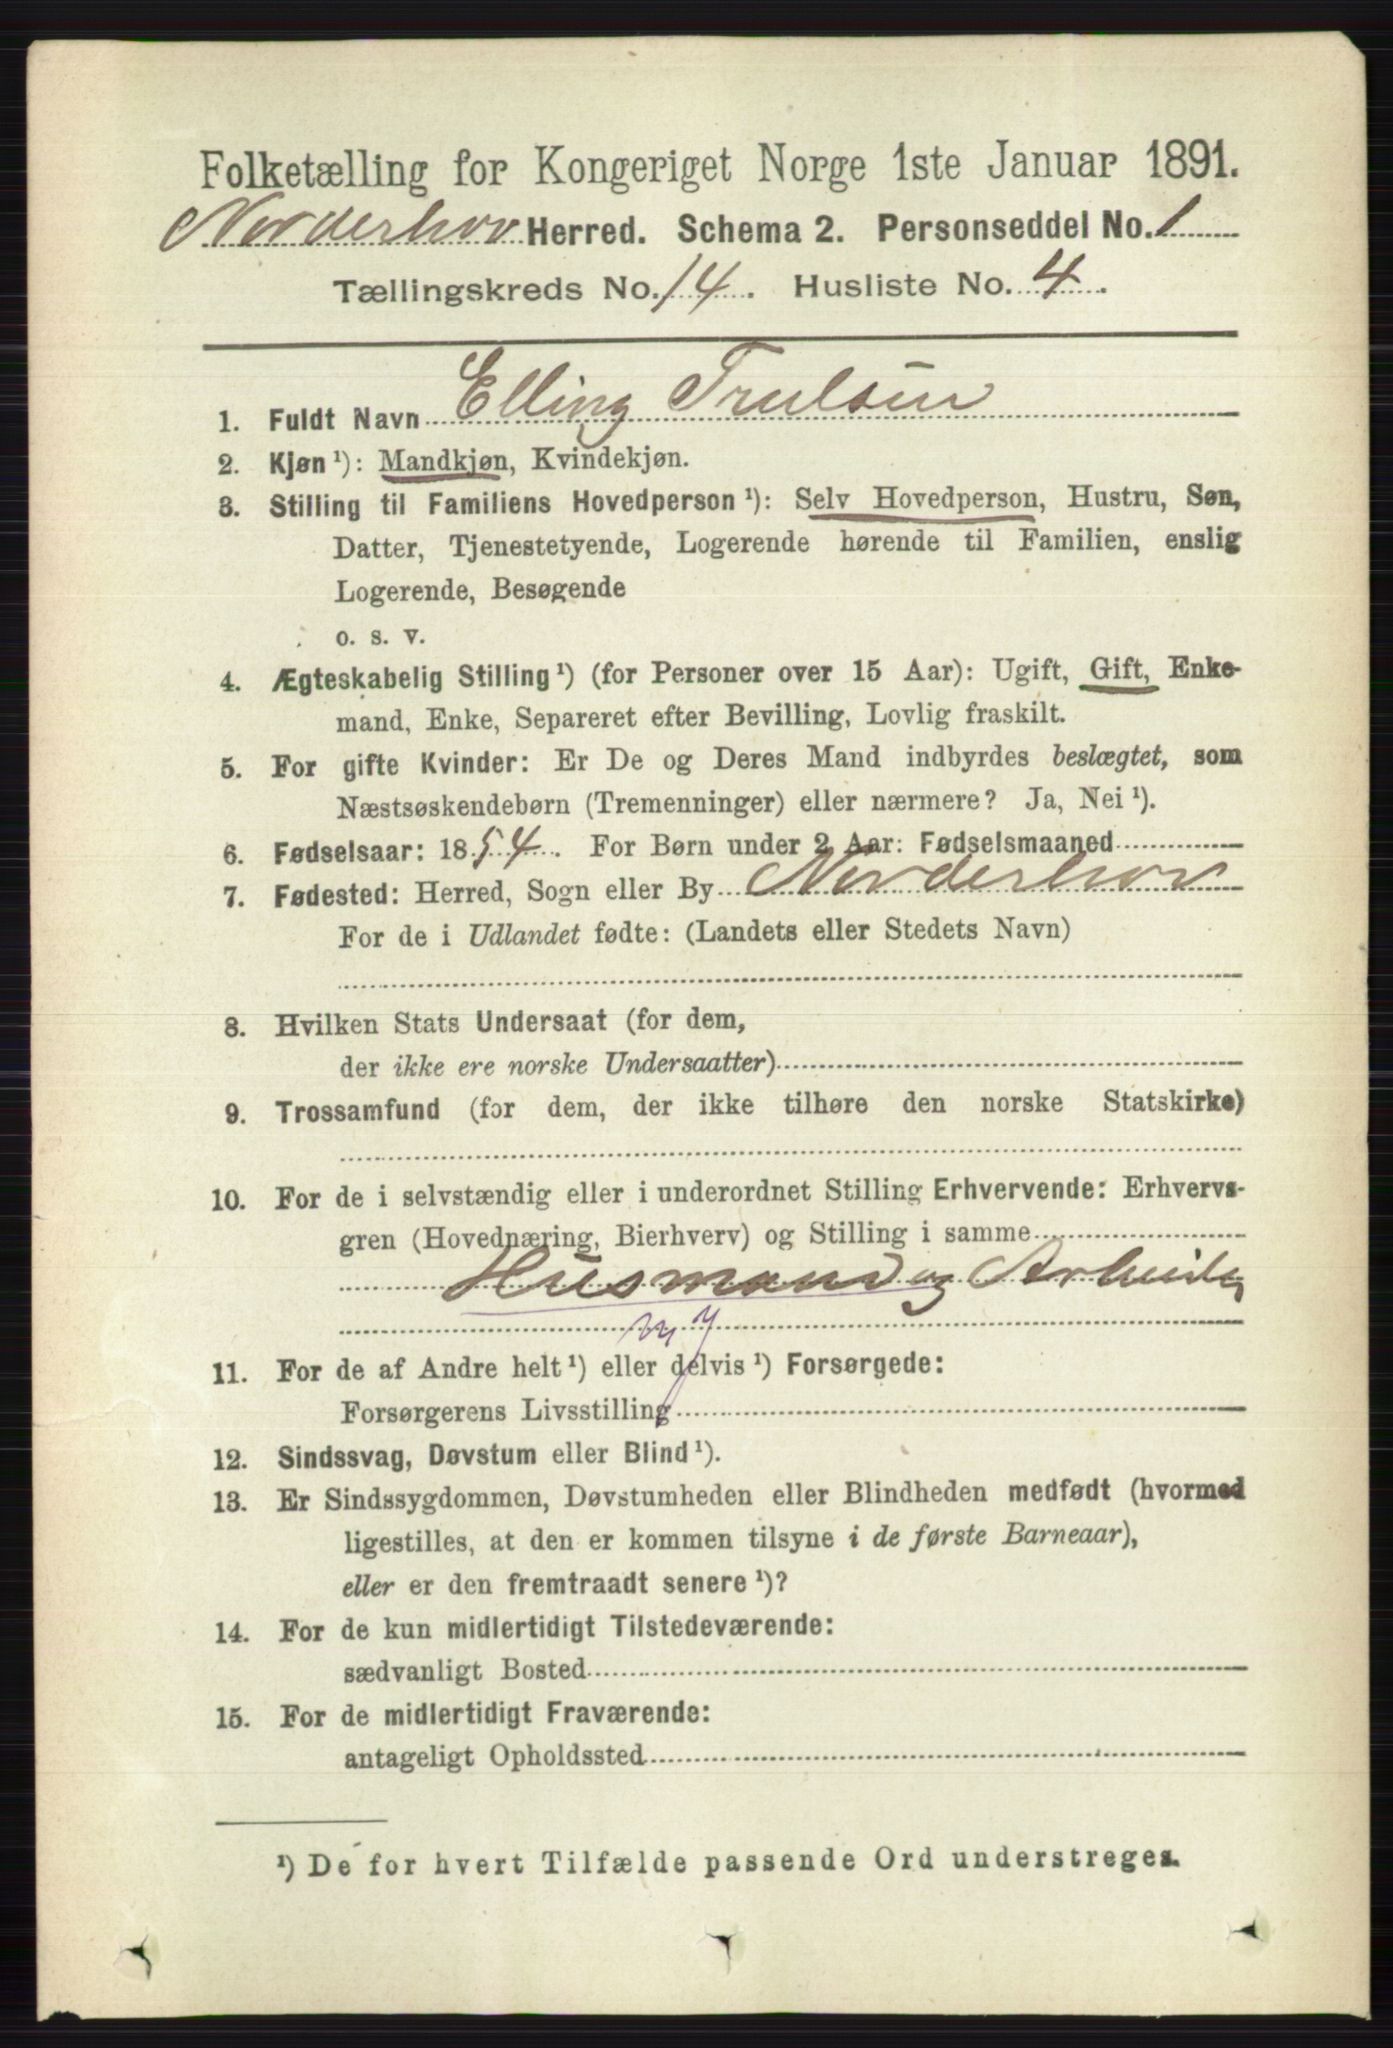 Folketælling for Kongeriget Norge 1ste Januar 1891.
Norderhov Herred. Schema 2. Personseddel No. 1
Tællingskreds No. 14. Husliste No. 4.
1. Fuldt Navn Elling Trulsen
2. Kjøn ¹): Mandkjøn, Kvindekjøn.
3. Stilling til Familiens Hovedperson ¹): Selv Hovedperson, Hustru, Søn,
Datter, Tjenestetyende, Logerende hørende til Familien, enslig
Logerende, Besøgende
o. s. v.
4. Ægteskabelig Stilling ¹) (for Personer over 15 Aar): Ugift, Gift, Enke-
mand, Enke, Separeret efter Bevilling, Lovlig fraskilt.
5. For gifte Kvinder: Er De og Deres Mand indbyrdes beslægtet, som
Næstsøskendebørn (Tremenninger) eller nærmere? Ja, Nei ¹).
6. Fødselsaar: 1854. For Børn under 2 Aar: Fødselsmaaned
7. Fødested: Herred, Sogn eller By Norderhov
For de i Udlandet fødte: (Landets eller Stedets Navn)
8. Hvilken Stats Undersaat (for dem,
der ikke ere norske Undersaatter)
9. Trossamfund (for dem, der ikke tilhøre den norske Statskirke)
10. For de i selvstændig eller i underordnet Stilling Erhvervende: Erhvervs-
gren (Hovednæring, Bierhverv) og Stilling i samme
Husmand og Arbeider
11. For de af Andre helt ¹) eller delvis ¹) Forsørgede:
Forsørgerens Livsstilling
12. Sindssvag, Døvstum eller Blind ¹).
13. Er Sindssygdommen, Døvstumheden eller Blindheden medfødt (hvormed
ligestilles, at den er kommen tilsyne i de første Barneaar),
eller er den fremtraadt senere ¹)?
14. For de kun midlertidigt Tilstedeværende:
sædvanligt Bosted
15. For de midlertidigt Fraværende:
antageligt Opholdssted
¹) De for hvert Tilfælde passende Ord understreges.